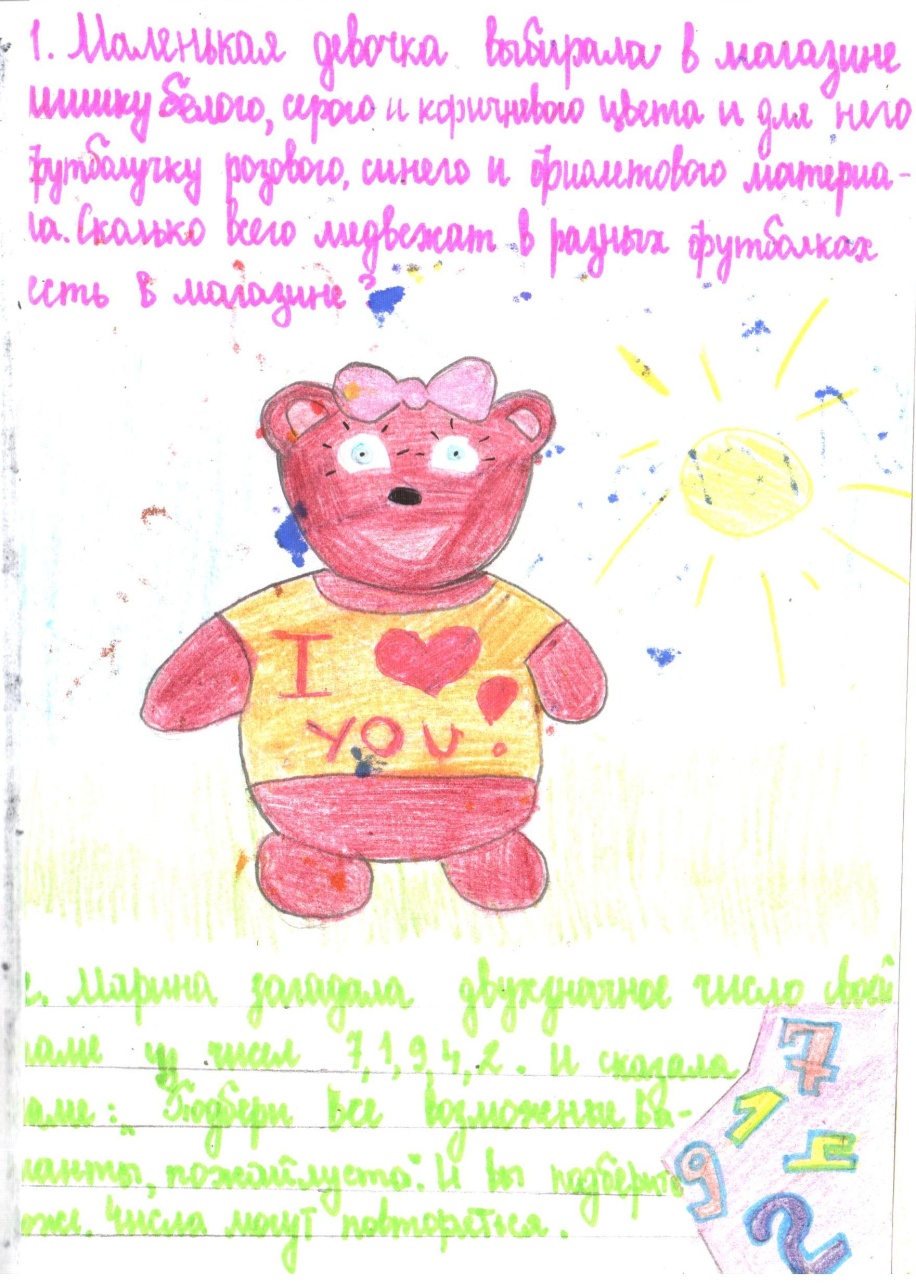 1. Маленькая девочка выбирала в магазине
мишку белого, серого и коричневого цвета и для него
футболучку розового, синего и фиолетового материа-
ла. Сколько всего медвежат в разных футболках
есть в магазине?
I
YOU.
2. Марина загадала двухзначное число своей
маме из чисел 7,1,9,4,2. И сказала
маме: „Подбери все возможные ва-
рианты, пожайлуста". И вы подберите
тоже. Числа могут повторяться.
7
1
9
4
2